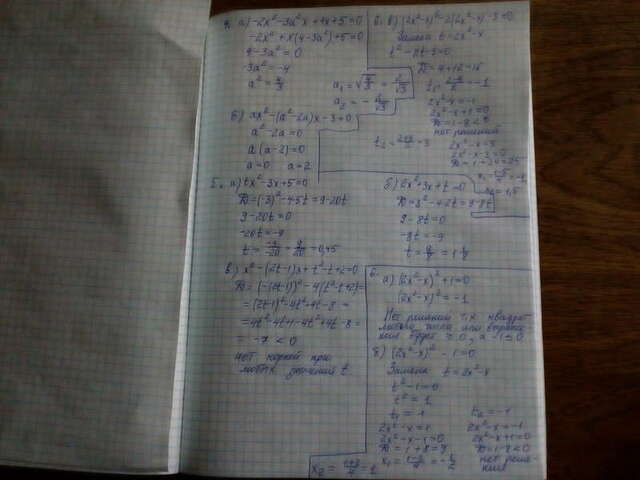 4. а) -2x²-3a²x+4x+5=0
-2x²+x(4-3a²)+5=0
4-3a²=0
-3a²=-4
a²=4/3
a₁=√4/3=2/√3
a₂=-2/√3
б) ax²-(a²-2a)x-3=0
a²-2a=0
a(a-2)=0
a=0 a=2
5. а) tx²-3x+5=0
D=(-3)²-4·5t=9-20t
9-20t=0
-20t=-9
t=-9/-20=9/20=0,45
б) 2x²+3x+t=0
D=3²-4·2t=9-8t
9-8t=0
-8t=-9
t=9/8=1 1/8
в) x²-(2t-1)x+t²-t+2=0
D=(-(2t-1))²-4(t²-t+2)=
=(2t-1)²-4t²+4t-8=
=4t²-4t+1-4t²+4t-8=
=-7<0
нет корней при
любых значений t
6. в) (2x²-x)²-2(2x²-x)-3=0
Замена t=2x²-x
t²-2t-3=0
D=4+12=16
t₁=2-4/2=-1
2x²-x=-1
2x²-x+1=0
D=1-8<0
нет решений
t₂=2+4/2=3
2x²-x=3
2x²-x-3=0
D=1+24=25
x₁=1-5/4=-1
x₂=1,5
6.
а) (2x²-x)²+1=0
(2x²-x)²=-1
Нет решений т.к квадрат
любого числа или выраже
ния будет ≥0, а -1≤0
б) (2x²-x)²-1=0
Замена t=2x²-x
t²-1=0
t²=1
t₁=1 t₂=-1
2x²-x=1 2x²-x=-1
2x²-x-1=0 2x²-x+1=0
D=1+8=9 D=1-8<0
x₁=1-3/4=-1/2 нет реше-
ния
x₂=1+3/4=1